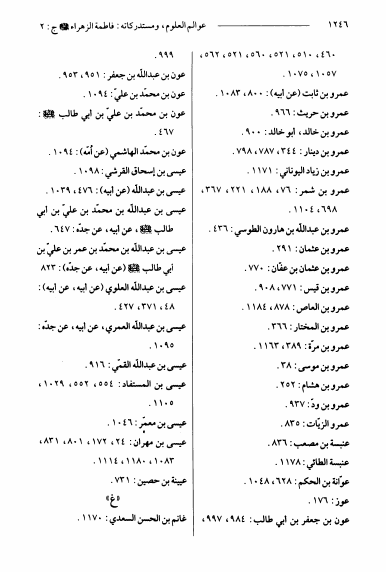 ١٢٤٦ عوالم العلوم، ومستدركاته: فاطمة الزهراء ﷺ ج: ٢
٤٦٠، ٥١٠، ٥٢١، ٥٦٠، ٥٢١، ٥٦٢،
١٠٥٧، ١٠٧٥.
عمرو بن ثابت (عن أبيه): ٨٠٠، ١٠٨٣.
عمرو بن حريث: ٩٦٦.
عمرو بن خالد، أبو خالد: ٩٠٠.
عمرو بن دينار: ٣٤٤، ٧٨٧، ٧٩٨.
عمرو بن زياد اليوناني: ١١٧١.
عمرو بن شمر: ٧٦، ١٨٨، ٢٢١، ٣٦٧،
٦٩٨، ١١٠٤.
عمرو بن عبدالله بن هارون الطوسي: ٤٣٦.
عمرو بن عثمان: ٢٩١.
عمرو بن عثمان بن عفّان: ٧٧٠.
عمرو بن قيس: ٧٧١، ٩٠٨.
عمرو بن العاص: ٨٧٨، ١١٨٤.
عمرو بن المختار: ٣٦٦.
عمرو بن مرّة: ٣٨٩، ١١٦٣.
عمرو بن موسى: ٣٨.
عمرو بن هشام: ٢٥٢.
عمرو بن ودّ: ٩٣٧.
عمرو الزيّات: ٨٣٥.
عنبسة بن مصعب: ٨٣٦.
عنبسة الطائي: ١١٧٨.
عوانة بن الحكم: ٦٢٨، ١٠٤٨.
عوز: ١٧٦.
عون بن جعفر بن أبي طالب: ٩٨٤، ٩٩٧،
٩٩٩.
عون بن عبدالله بن جعفر: ٩٥١، ٩٥٣.
عون بن محمّد بن عليّ: ١٠٩٤.
عون بن محمّد بن عليّ بن أبي طالب ﷺ:
٤٦٧.
عون بن محمّد الهاشمي (عن أمّه): ١٠٩٤.
عيسى بن إسحاق القرشي: ١٠٩٨.
عيسى بن عبدالله (عن أبيه): ٤٧٦، ١٠٣٩.
عيسى بن عبدالله بن محمّد بن عليّ بن أبي
طالب ﷺ، عن أبيه، عن جدّه: ٦٤٧.
عيسى بن عبدالله بن محمّد بن عمر بن عليّ بن
أبي طالب ﷺ (عن أبيه، عن جدّه): ٨٢٣
عيسى بن عبدالله العلوي (عن أبيه، عن أبيه):
٤٨، ٣٧١، ٤٢٧.
عيسى بن عبدالله العمري، عن أبيه، عن جدّه:
١٠٩٥.
عيسى بن عبدالله القمّي: ٩١٦.
عيسى بن المستفاد: ٥٥٤، ٥٥٢، ١٠٢٩،
١١٠٥.
عيسى بن معمّر: ١٠٤٦.
عيسى بن مهران: ٢٤، ١٧٢، ٨٠١، ٨٣١،
١٠٨٣، ١١٨٠، ١١١٤.
عيينة بن حصين: ٧٣١.
«غ»
غانم بن الحسن السعدي: ١١٧٠.